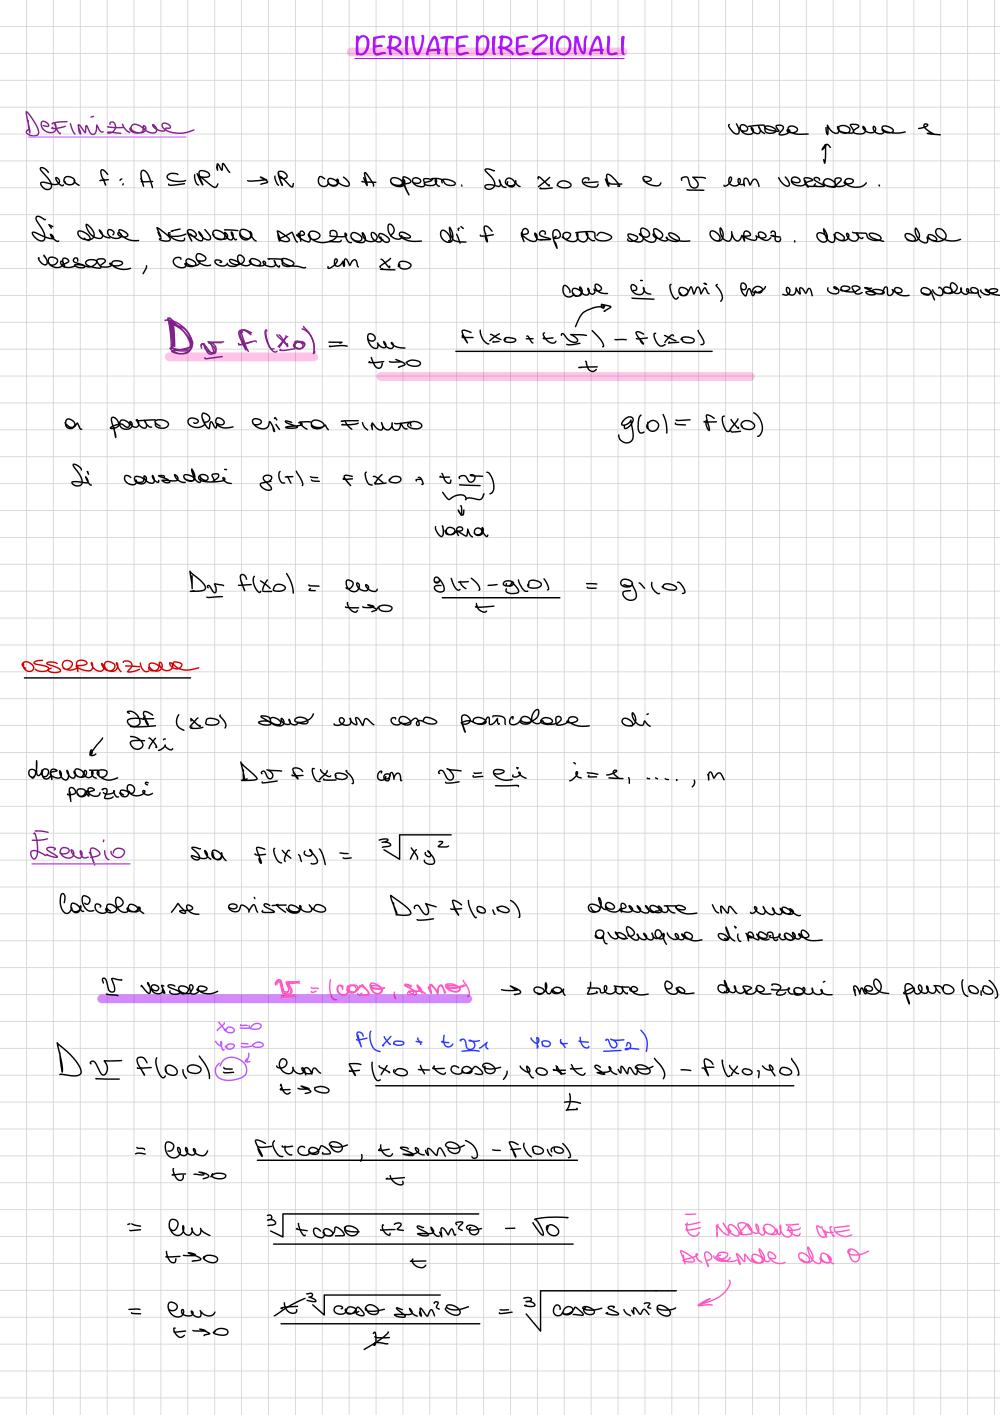 DERIVATE DIREZIONALI
Definizione
vettore norma 1
Sia f : A ⊆ ℝⁿ → ℝ con A aperto. Sia x0 ∈ A e v un versore.
Si dice DERIVATA DIREZIONALE di f rispetto alla direz. data dal
versore, calcolata in x0
come ei (omi) ho un versore qualunque
Dv f(x0) = lim t→0 (f(x0 + t v) - f(x0)) / t
a patto che esista FINITO
g(0) = f(x0)
Si consideri g(t) = f(x0 + t v)
varia
Dv f(x0) = lim t→0 (g(t) - g(0)) / t = g'(0)
OSSERVAZIONE
∂f/∂xi (x0) sono un caso particolare di
derivate parziali
Dv f(x0) con v = ei i = 1, ...., n
Esempio sia f(x,y) = ∛(xy²)
Calcola se esistono Dv f(0,0) derivate in una
qualunque direzione
v versore v = (cosθ, sinθ) → da tutte le direzioni nel punto (0,0)
x0 = 0
y0 = 0
f(x0 + t v1 y0 + t v2)
Dv f(0,0) = lim t→0 (f(x0 + t cosθ, y0 + t sinθ) - f(x0,y0)) / t
= lim t→0 (f(t cosθ, t sinθ) - f(0,0)) / t
= lim t→0 (∛(t cosθ t² sin²θ) - √0) / t
È NORMALE CHE
DIPENDE da θ
= lim t→0 (t ∛(cosθ sin²θ)) / t = ∛(cosθ sin²θ)